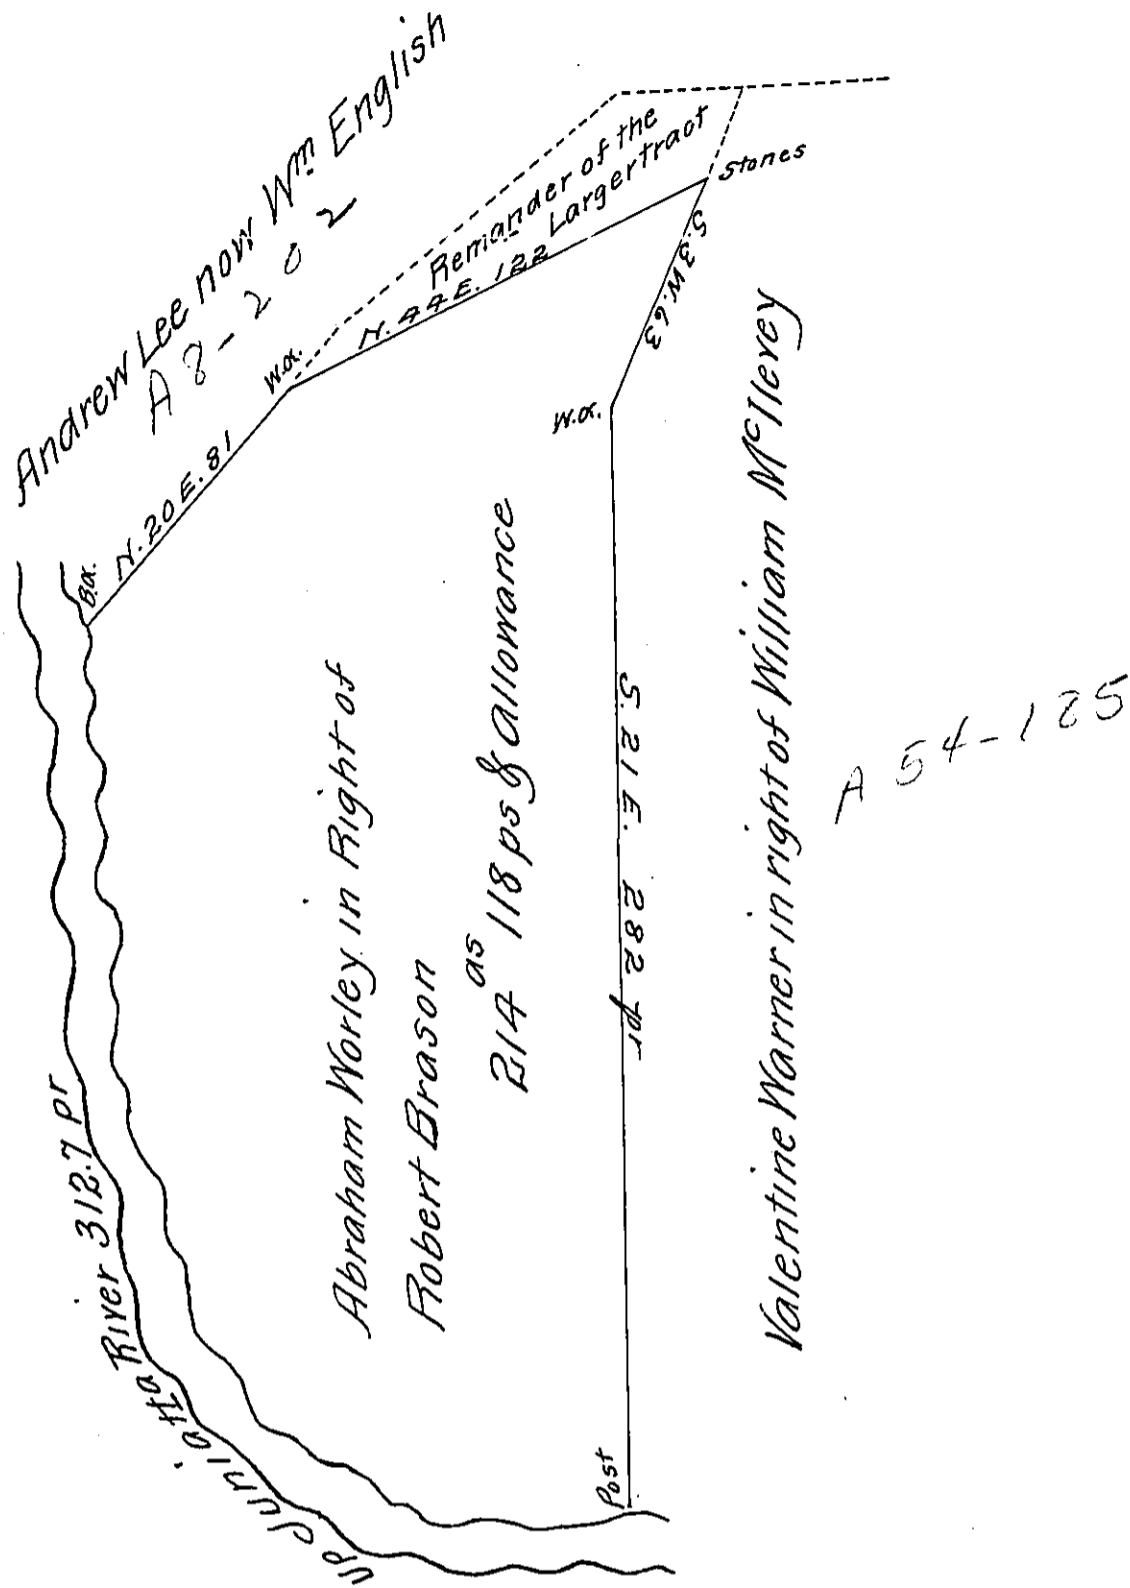 Andrew Lee now Wm English
A 8-202
Remainder of the
Larger tract
Stones
N. 44 E. 122
S. 3 W. 63
W.o.
W.o.
N. 20 E. 81
B.o.
Abraham Worley in Right of
Robert Brason
214 as 118 ps & allowance
S. 21 E. 282 pr
Valentine Warner in right of William McIlevey
A 54-125
Up Juniatta River 312.7 pr
Post